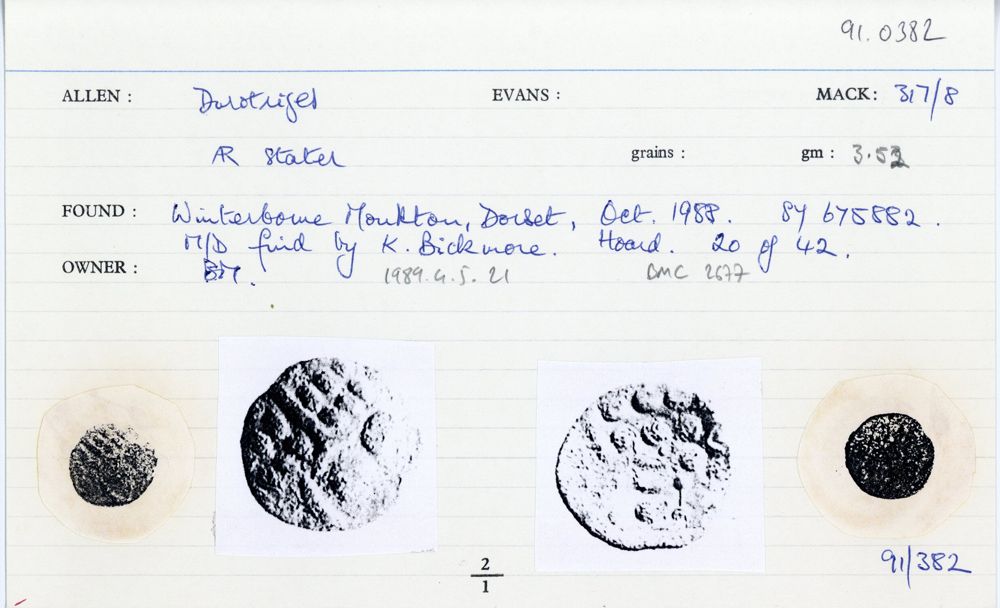 91.0382
ALLEN : Durotriges EVANS : MACK: 317/8
AR Stater grains : gm : 3.52
FOUND : Winterborne Monkton, Dorset, Oct. 1988. SY 675882.
M/D find by K. Bickmore. Hoard. 20 of 42.
OWNER : BM. 1989.9.5.21 BMC 2677
91/382
2
1